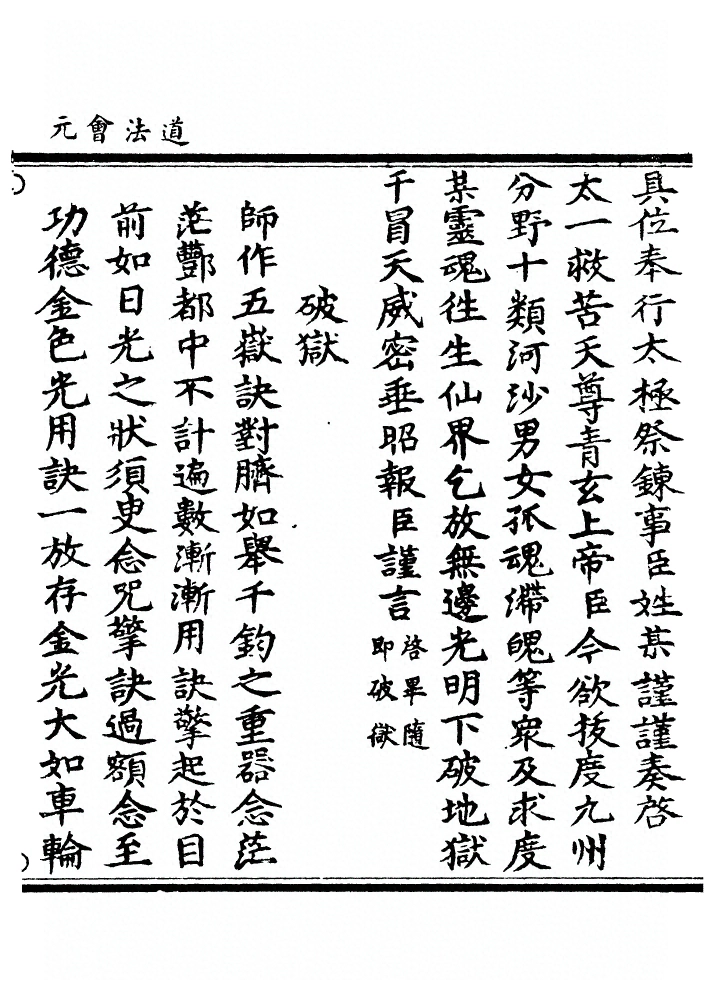 道法會元
具位奉行太極祭鍊事臣姓某謹謹奏啓
太一救苦天尊青玄上帝臣今欲拔度九州
分野十類河沙男女孤魂滯魄等衆及求度
某靈魂徃生仙界乞放無邊光明下破地獄
干冒天威密垂昭報臣謹言啓畢隨即破獄
破獄
師作五嶽訣對臍如舉千鈞之重器念茫
茫酆都中不計遍數漸漸用訣擎起於目
前如日光之狀須臾念咒擎訣過額念至
功德金色光用訣一放存金光大如車輪